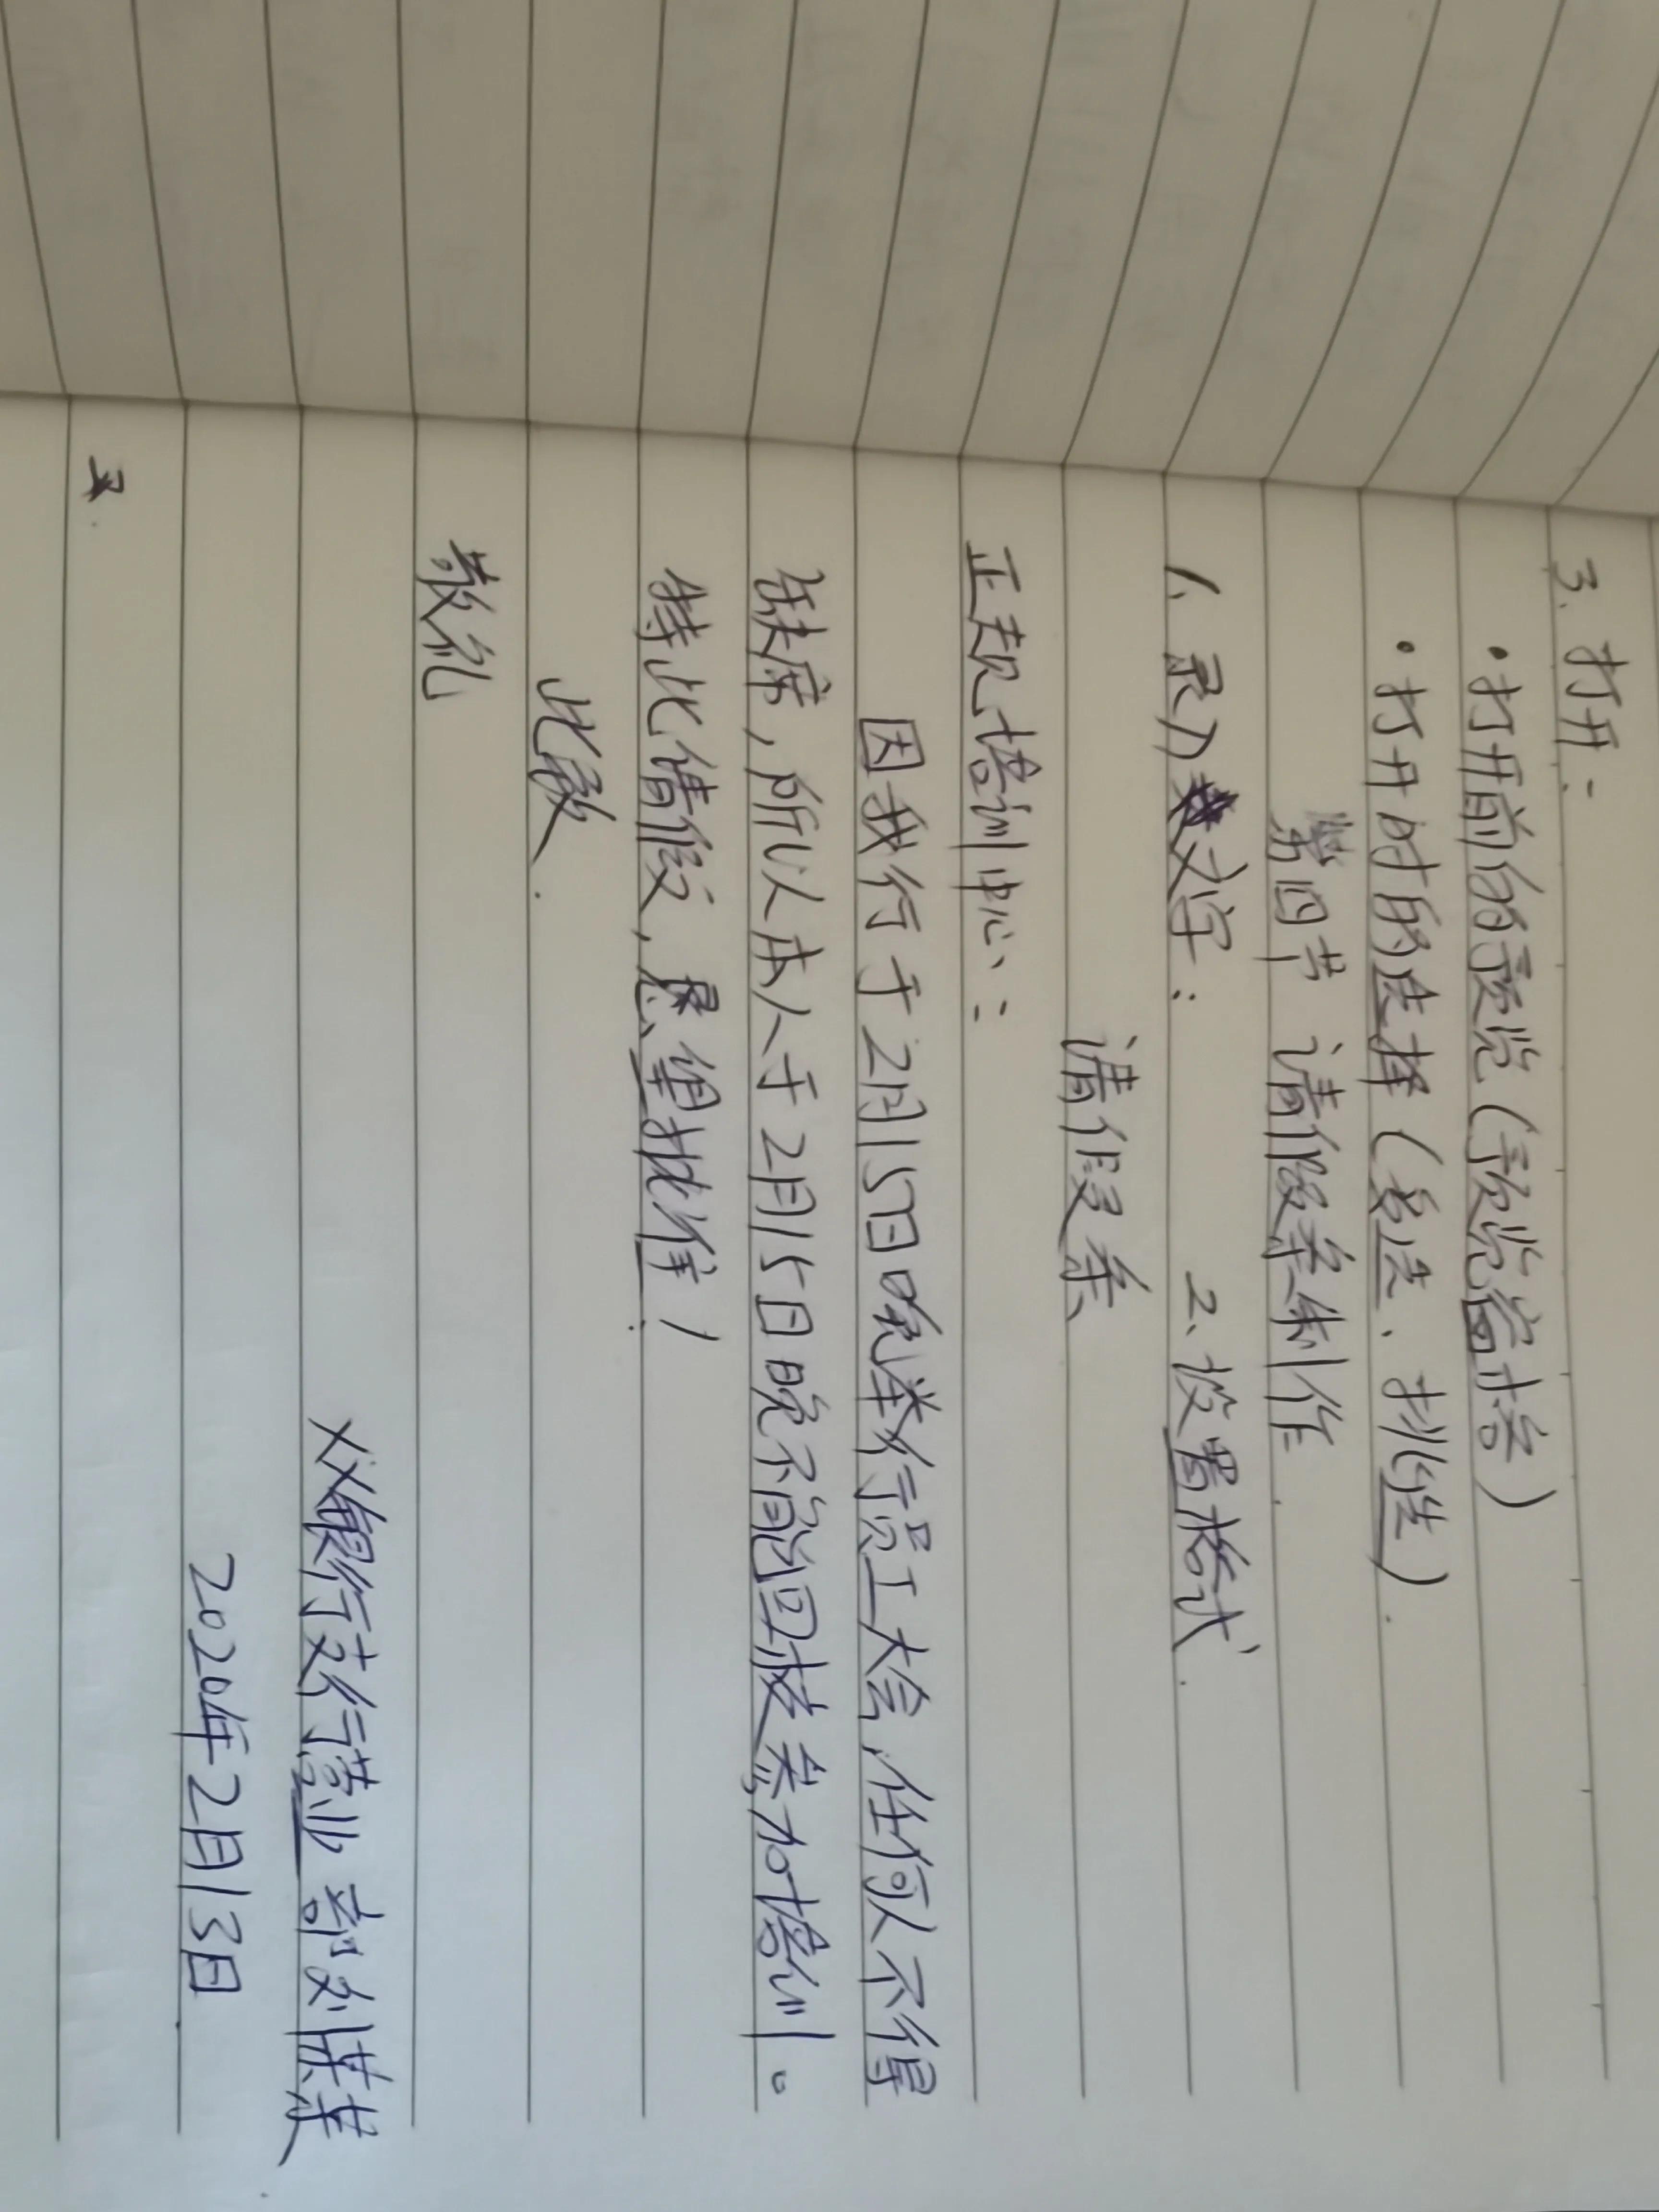 3、打开：
·打开前的预览（预览窗格）
·打开时的选择（方法、排他性）
第四节 请假条制作
1、录入文字： 2、设置格式
请假条
正规培训中心：
因我行于2月15日晚举行员工大会,任何人不得
缺席,所以本人于2月15日晚不能回校参加培训。
特此请假,恳望批准！
此致
敬礼
XX银行支行营业部刘某某
2020年2月13日